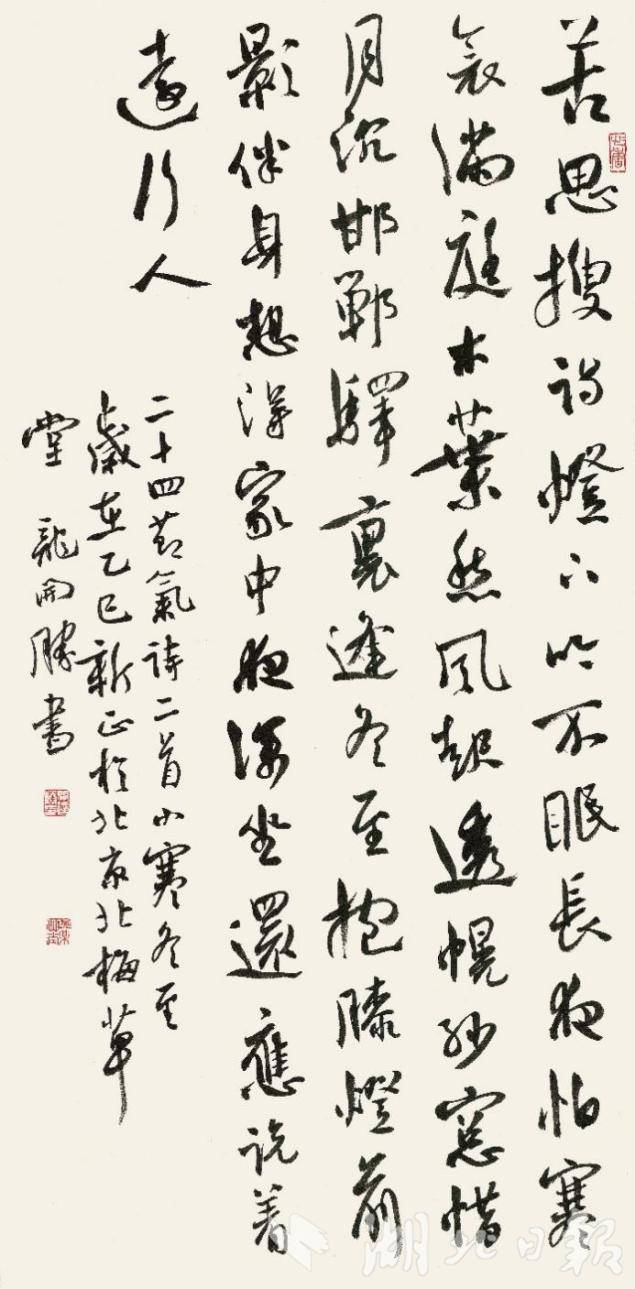 苦思搜詩燈下吟不眠長夜怕寒
衾滿庭木葉愁風起透幌紗窗惜
月沉邯鄲驛裏逢冬至抱膝燈前
影伴身想得家中夜深坐還應說着
遠行人
二十四節氣詩二首小寒冬至
歲在乙巳新正於北京北梅草
堂 龍開勝書
湖北日報